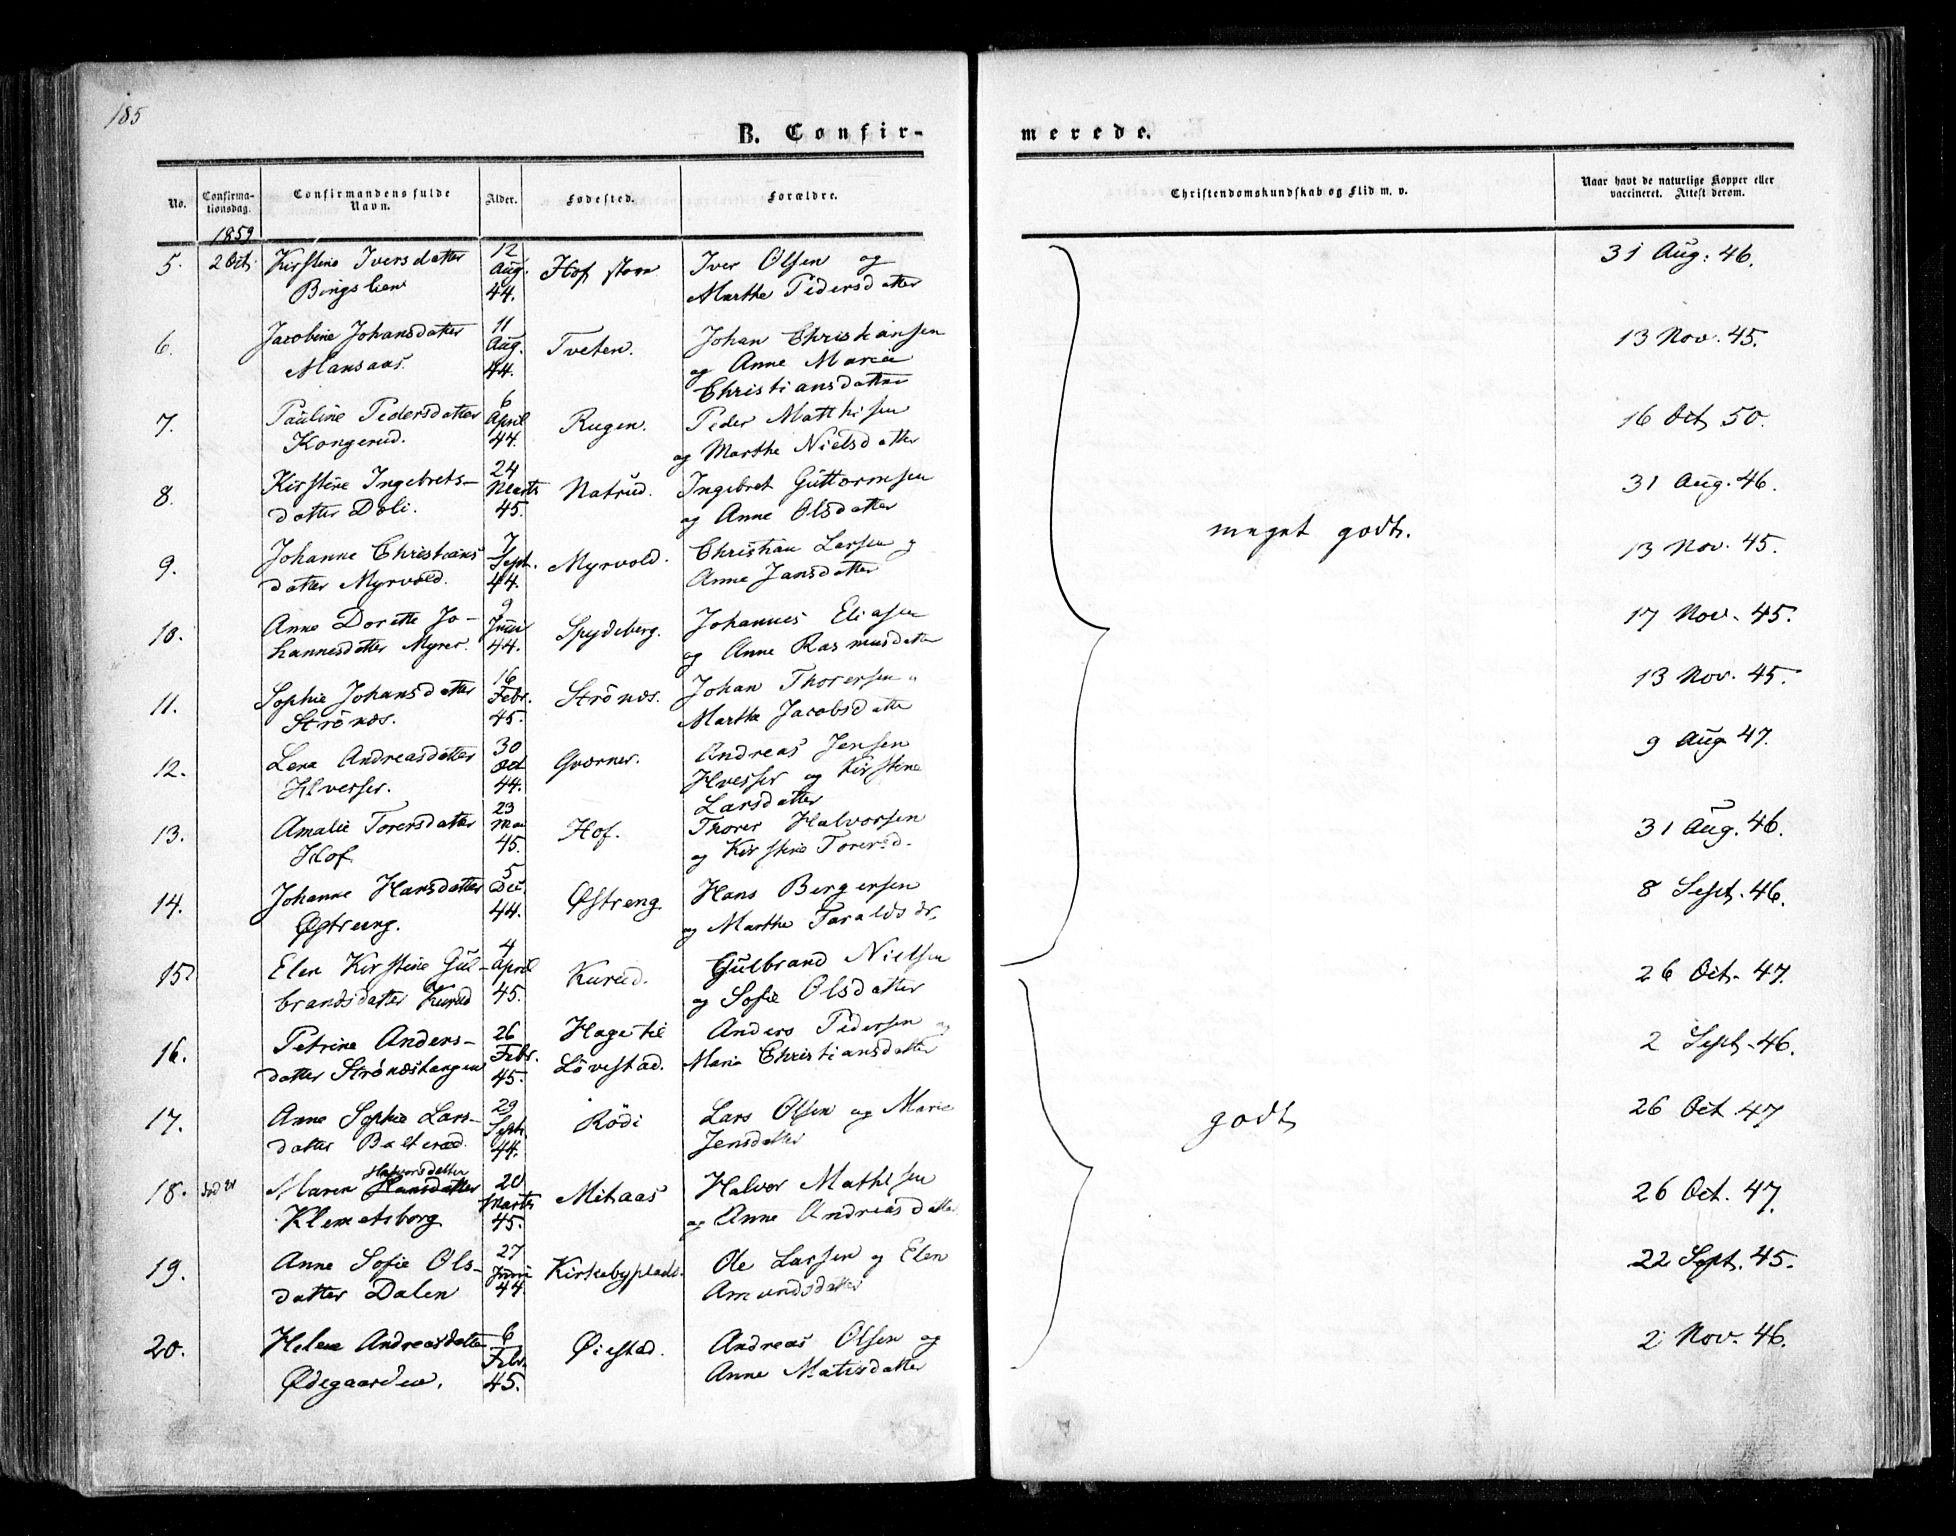 185
B. Confir-
merede.
No.
Confirma-
tionsdag.
Confirmandens fulde
Navn.
Alder.
Fødested.
Forældre.
Christendomskundskab og Flid m. v.
Naar havt de naturlige Kopper eller
vaccineret. Attest derom.
1859
5. 2 Oct. Kirstine Iversdatter 12 Aug. 44. Hof Iver Olsen og 31 Aug. 46.
Marthe Pedersdatter
6. Jacobine Johansdatter 11 Aug. 44. Tveten. Johan Christiansen 13 Nov. 45.
Mansaas. og Anne Maria
Christiansdatter
7. Pauline Pedersdatter 6 April 44. Rugen. Peder Matthisen 16 Oct. 50.
Kongerud. og Marthe Nielsdatter
8. Kirstine Ingebrets- 24 Marts 45. Natrud. Ingebret Guttormsen 31 Aug. 46.
datter Dali. og Anne Olsdatter
meget godt.
9. Johanne Christians 7 Sept. 44. Myrvold. Christian Larsen og 13 Nov. 45.
datter Myrvold. Anne Jansdatter
10. Anne Dorette Jo- 9 Juni 44. Spydeberg. Johannes Eliasen 17 Nov. 45.
hannesdatter Myrer. og Anne Rasmusdatter
11. Sophie Johansdatter 16 Febr. 45. Strönæs. Johan Thorersen 13 Nov. 45.
Strönæs. Marthe Jacobsdatter
12. Lena Andreasdatter 30 Oct 44. Gværner. Andreas Jensen 9 Aug 47.
Hvesser. Hvesser og Kirstine
Larsdatter
13. Amalie Torersdatter 23 Mai 45. Hof. Thorer Halvorsen 31 Aug. 46.
Hof og Kirstine Torersd.
14. Johanne Hansdatter 5 Dec. 44. Østreng Hans Bergersen 8 Sept. 46.
Østreng. og Marthe Taraldsdr.
15. Elen Kirstine Gul- 4 April 45. Kurud. Gulbrand Nielsen 26 Oct. 47.
brandsdatter Kurud og Sofie Olsdatter
16. Petrine Anders- 26 Febr. 45. Hage til Anders Pedersen og 2 Sept. 46.
datter Strönæstangen Lövestad. Maria Christiansdatter
17. Anne Sophie Lars- 29 Sept. 44. Rödi Lars Olsen og Marie 26 Oct 47
datter Jensdatter
godt
18. Maren Hansdatter Halvorsdatter 20 Marts 45. Mehaas Halvor Mathisen 26 Oct. 47.
Klemetsborg og Anne Andreasdatter
19. Anne Sofie Ols- 27 Juni 44. Kirkebyplads. Ole Larsen og Elen 22 Sept. 45.
datter Dalen Amundsdatter
20. Helene Andreasdatter 6 Febr. 45. Øiestad. Andreas Olsen og 2 Nov. 46.
Ødegaarden. Anne Matisdatter